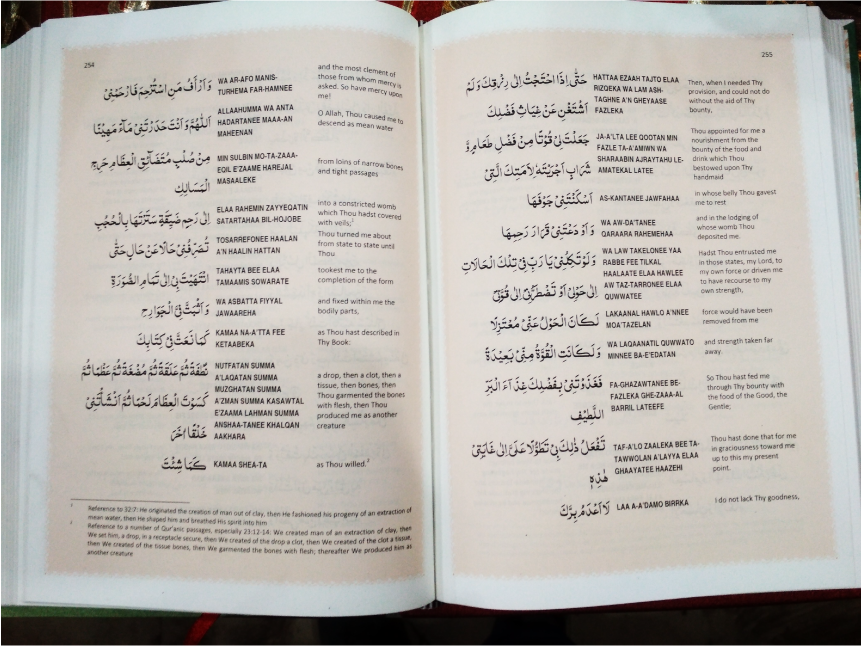 254
وَاَرْأَفُ مَنِ اسْتُرْحِمَ فَارْحَمْنِيْ
WA AR-AFO MANIS-
TURHEMA FAR-HAMNEE
and the most clement of
those from whom mercy is
asked. So have mercy upon
me!
اَللّٰهُمَّ وَاَنْتَ حَدَرْتَنِيْ مَآءً مَهِيْنًا
ALLAAHUMMA WA ANTA
HADARTANEE MAAA-AN
MAHEENAN
O Allah, Thou caused me to
descend as mean water
مِنْ صُلْبٍ مُتَضَآئِقِ الْعِظَامِ حَرِجِ
الْمَسَالِكِ
MIN SULBIN MO-TA-ZAAA-
EQIL E'ZAAME HAREJAL
MASAALEKE
from loins of narrow bones
and tight passages
اِلٰى رَحِمٍ ضَيِّقَةٍ سَتَرْتَهَا بِالْحُجُبِ
ELAA RAHEMIN ZAYYEQATIN
SATARTAHAA BIL-HOJOBE
into a constricted womb
which Thou hadst covered
with veils;1
تُصَرِّفُنِيْ حَالًا عَنْ حَالٍ حَتّٰى
TOSARREFONEE HAALAN
A'N HAALIN HATTAN
Thou turned me about
from state to state until
Thou
انْتَهَيْتَ بِيْ اِلٰى تَمَامِ الصُّوْرَةِ
TAHAYTA BEE ELAA
TAMAAMIS SOWARATE
tookest me to the
completion of the form
وَاَثْبَتَّ فِيَّ الْجَوَارِحَ
WA ASBATTA FIYYAL
JAWAAREHA
and fixed within me the
bodily parts,
كَمَا نَعَتَّ فِيْ كِتَابِكَ
KAMAA NA-A'TTA FEE
KETAABEKA
as Thou hast described in
Thy Book:
نُطْفَةً ثُمَّ عَلَقَةً ثُمَّ مُضْغَةً ثُمَّ عَظْمًا ثُمَّ
كَسَوْتَ الْعِظَامَ لَحْمًا ثُمَّ اَنْشَأْتَنِيْ
خَلْقًا اٰخَرَ
NUTFATAN SUMMA
A'LAQATAN SUMMA
MUZGHATAN SUMMA
A'ZMAN SUMMA KASAWTAL
E'ZAAMA LAHMAN SUMMA
ANSHAA-TANEE KHALQAN
AAKHARA
a drop, then a clot, then a
tissue, then bones, then
Thou garmented the bones
with flesh, then Thou
produced me as another
creature
كَمَا شِئْتَ
KAMAA SHEA-TA
as Thou willed.2
1 Reference to 32:7: He originated the creation of man out of clay, then He fashioned his progeny of an extraction of
mean water, then He shaped him and breathed His spirit into him
2 Reference to a number of Qur'anic passages, especially 23:12-14: We created man of an extraction of clay, then
We set him, a drop, in a receptacle secure, then We created of the drop a clot, then We created of the clot a tissue,
then We created of the tissue bones, then We garmented the bones with flesh; thereafter We produced him as
another creature
255
حَتّٰى اِذَا احْتَجْتُ اِلٰى رِزْقِكَ وَلَمْ
اَسْتَغْنِ عَنْ غِيَاثِ فَضْلِكَ
HATTAA EZAAH TAJTO ELAA
RIZQEKA WA LAM ASH-
TAGHNE A'N GHEYAASE
FAZLEKA
Then, when I needed Thy
provision, and could not do
without the aid of Thy
bounty,
جَعَلْتَ لِيْ قُوْتًا مِنْ فَضْلِ طَعَامٍ وَّ
شَرَابٍ اَجْرَيْتَهٗ لِاَمَتِكَ الَّتِيْ
JA-A'LTA LEE QOOTAN MIN
FAZLE TA-A'AMIWN WA
SHARAABIN AJRAYTAHU LE-
AMATEKAL LATEE
Thou appointed for me a
nourishment from the
bounty of the food and
drink which Thou
bestowed upon Thy
handmaid
اَسْكَنْتَنِيْ جَوْفَهَا
AS-KANTANEE JAWFAHAA
in whose belly Thou gavest
me to rest
وَاَوْدَعْتَنِيْ قَرَارَ رَحِمِهَا
WA AW-DA'TANEE
QARAARA RAHEMEHAA
and in the lodging of
whose womb Thou
deposited me.
وَلَوْ تَكِلْنِيْ يَا رَبِّ فِيْ تِلْكَ الْحَالَاتِ
اِلٰى حَوْلِيْ اَوْ تَضْطَرُّنِيْ اِلٰى قُوَّتِيْ
WA LAW TAKELONEE YAA
RABBE FEE TILKAL
HAALAATE ELAA HAWLEE
AW TAZ-TARRONEE ELAA
QUWWATEE
Hadst Thou entrusted me
in those states, my Lord, to
my own force or driven me
to have recourse to my
own strength,
لَكَانَ الْحَوْلُ عَنِّيْ مُعْتَزِلًا
LAKAANAL HAWLO A'NNEE
MOA'TAZELAN
force would have been
removed from me
وَلَكَانَتِ الْقُوَّةُ مِنِّيْ بَعِيْدَةً
WA LAQAANATIL QUWWATO
MINNEE BA-E'EDATAN
and strength taken far
away.
فَغَذَوْتَنِيْ بِفَضْلِكَ غِذَآءَ الْبَرِّ
اللَّطِيْفِ
FA-GHAZAWTANEE BE-
FAZLEKA GHE-ZAAA-AL
BARRIL LATEEFE
So Thou hast fed me
through Thy bounty with
the food of the Good, the
Gentle;
تَفْعَلُ ذٰلِكَ بِيْ تَطَوُّلًا عَلَيَّ اِلٰى غَايَتِيْ
هٰذِهٖ
TAF-A'LO ZAALEKA BEE TA-
TAWWOLAN A'LAYYA ELAA
GHAAYATEE HAAZEHI
Thou hast done that for me
in graciousness toward me
up to this my present
point.
لَا اَعْدَمُ بِرَّكَ
LAA A-A'DAMO BIRRKA
I do not lack Thy goodness,